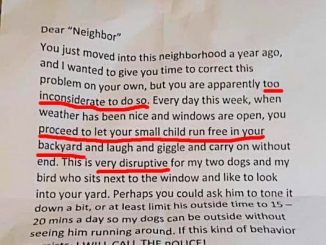 Dear "Neighbor"
You just moved into this neighborhood a year ago,
and I wanted to give you time to correct this
problem on your own, but you are apparently too
inconsiderate to do so. Every day this week, when
weather has been nice and windows are open, you
proceed to let your small child run free in your
backyard and laugh and giggle and carry on without
end. This is very disruptive for my two dogs and my
bird who sits next to the window and like to look
into your yard. Perhaps you could ask him to tone it
down a bit, or at least limit his outside time to 15 –
20 mins a day so my dogs can be outside without
seeing him running around. If this kind of behavior
I WILL CALL THE POLICE!